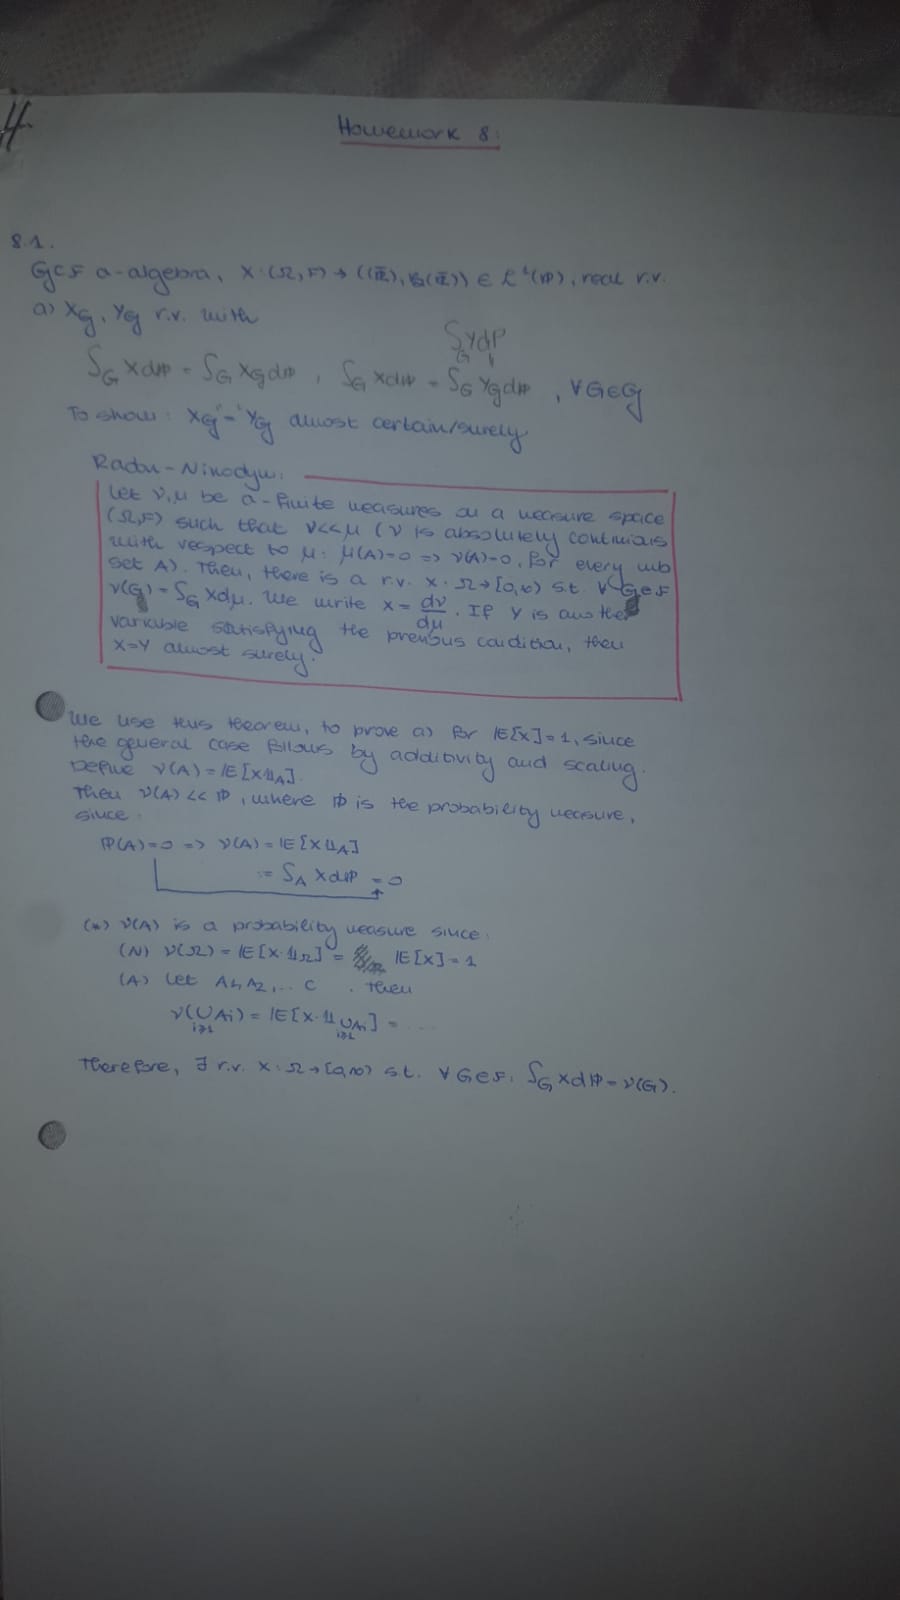 Homework 8:
8.1.
G⊂F σ-algebra, X:(Ω,F)→((ℝ̄),B(ℝ̄)) ∈ L¹(ℙ), real r.v.
a) X_G, Y_G r.v. with
∫_G YdP
∫_G Xdℙ = ∫_G X_G dℙ, ∫_G Xdℙ = ∫_G Y_G dℙ, ∀G∈G
To show: X_G '=' Y_G almost certain/surely
Radon-Nikodym:
Let ν,μ be σ-finite measures on a measure space
(Ω,F) such that ν<<μ (ν is absolutely continuous
with respect to μ: μ(A)=0 => ν(A)=0, for every mb
set A). Then, there is a r.v. X:Ω→[0,∞) s.t. ∀G∈F
ν(G) = ∫_G Xdμ. We write X = dν/dμ. If Y is another
variable satisfying the previous condition, then
X=Y almost surely.
We use this theorem, to prove a) for 𝔼[X]=1, since
the general case follows by additivity and scaling.
Define ν(A)=𝔼[X𝟙_A].
Then ν(A) << ℙ, where ℙ is the probability measure,
since:
ℙ(A)=0 => ν(A)=𝔼[X𝟙_A]
:= ∫_A Xdℙ = 0
(*) ν(A) is a probability measure since:
(N) ν(Ω) = 𝔼[X·𝟙_Ω] = 𝔼[X]=1
(A) Let A₁,A₂,... ⊂ . Then
ν(∪_{i≥1} Ai) = 𝔼[X·𝟙_{∪_{i≥1} Ai}] = ...
Therefore, ∃ r.v. X:Ω→[0,∞) s.t. ∀G∈F: ∫_G Xdℙ = ν(G).